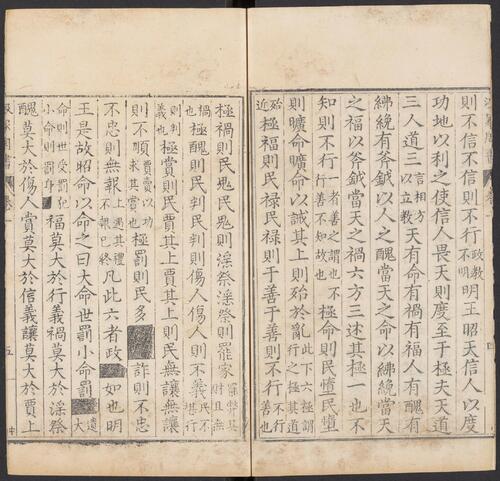 則不信不信則不行政教不明明王昭天信人以度
功地以利之使信人畏天則度至于極夫天道
三人道三言相方以立教天有命有禍有福人有醜有
紼絻有斧鉞以人之醜當天之命以紼絻當天
之福以斧鉞當天之禍六方三述其極一也不
知則不行一者善之謂也不行善不知故也極命則民墮民墮
則曠命曠命以誡其上則殆於亂此下六極謂行之極其道
殆近極福則民祿民祿則干善干善則不行不行善也
極禍則民鬼民鬼則淫祭淫祭則罷家罷弊其財且無
禍也極醜則民叛民叛則傷人傷人則不義民不堪行
義也則判極賞則民賈其上賈其上則民無讓無讓
則不順賈賣以功求其賞也極罰則民多詐多詐則不忠
不忠則無報上遇其禮不報已終凡此六者政之始也明
王是故昭命以命之曰大命世罰小命罰遺大
命則世受罰犯小命則罰身福莫大於行義禍莫大於淫祭
醜莫大於傷人賞莫大於信義讓莫大於賈上
汲冢周書 卷一 五